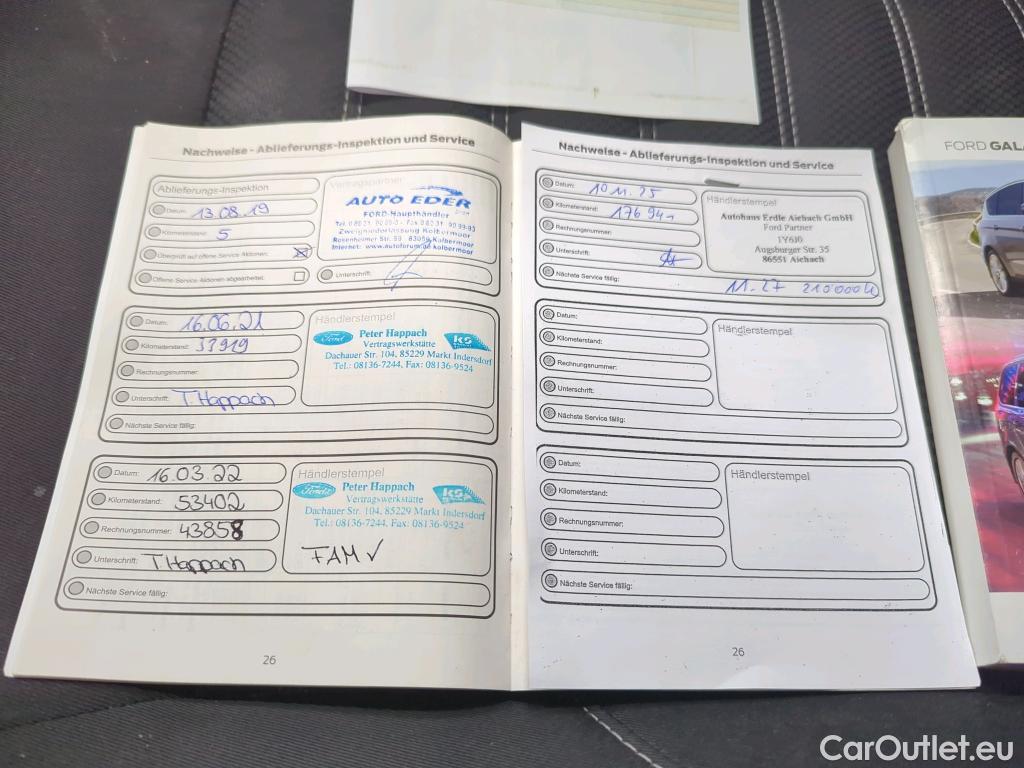 Nachweise - Ablieferungs-Inspektion und Service
Ablieferungs-Inspektion
Datum: 13.08.19
Kilometerstand: 5
Überprüft auf offene Service Aktionen:
Offene Service Aktionen abgearbeitet:
Vertragspartner
AUTO EDER
FORD-Haupthändler
Zweigniederlassung Kolbermoor
Rosenheimer Str. 59 83059 Kolbermoor
Internet: www.autoforum.de kolbermoor
Unterschrift:
Datum: 16.06.21
Kilometerstand: 37919
Rechnungsnummer:
Unterschrift: T Happach
Händlerstempel
Ford
Peter Happach
Vertragswerkstätte
Dachauer Str. 104, 85229 Markt Indersdorf
Tel.: 08136-7244, Fax: 08136-9524
Nächste Service fällig:
Datum: 16.03.22
Kilometerstand: 53402
Rechnungsnummer: 43858
Unterschrift: T Happach
Händlerstempel
Ford
Peter Happach
Vertragswerkstätte
Dachauer Str. 104, 85229 Markt Indersdorf
Tel.: 08136-7244, Fax: 08136-9524
FAM ✓
Nächste Service fällig:
26
Nachweise - Ablieferungs-Inspektion und Service
Datum: 10 11.25
Kilometerstand:
Rechnungsnummer:
Unterschrift:
Händlerstempel
Autohaus Erdle Aichach GmbH
Ford Partner
1Y610
Augsburger Str. 35
86551 Aichach
Nächste Service fällig: 11.27 210000
Datum:
Kilometerstand:
Rechnungsnummer:
Unterschrift:
Händlerstempel
Nächste Service fällig:
Datum:
Kilometerstand:
Rechnungsnummer:
Unterschrift:
Händlerstempel
Nächste Service fällig:
26
FORD
CarOutlet.eu